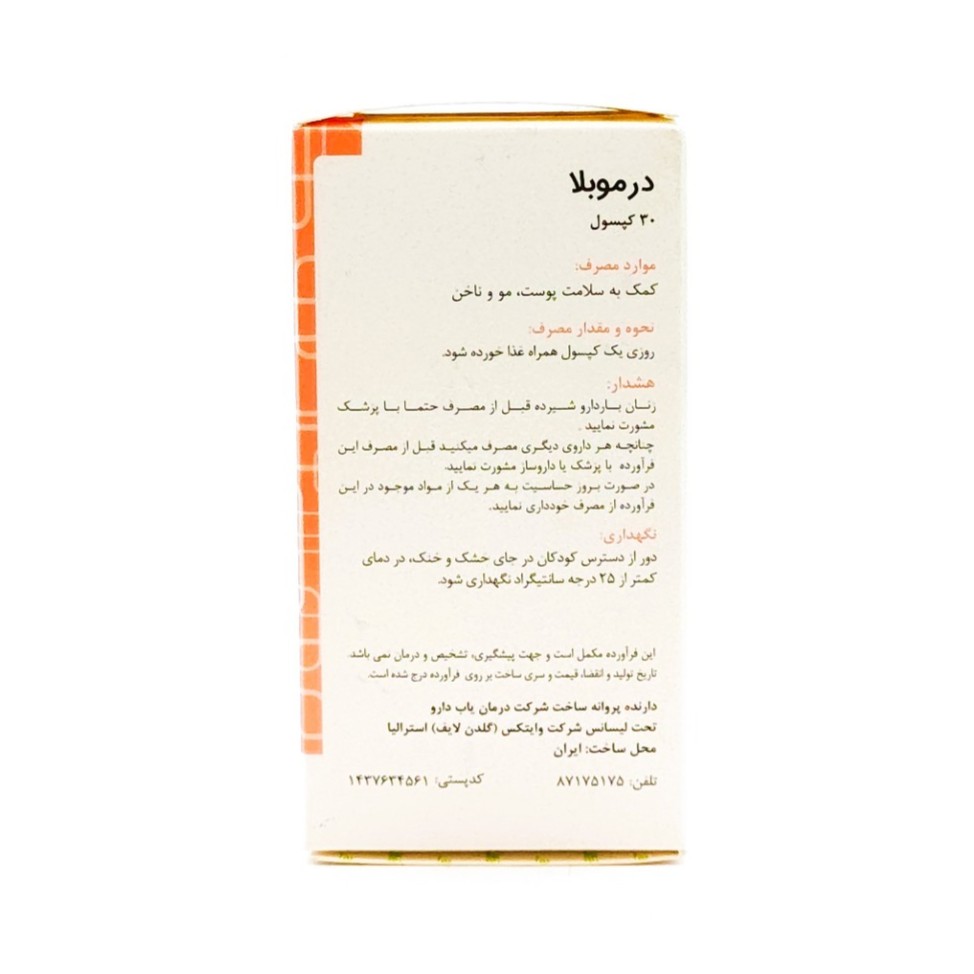 درموبلا
۳۰ کپسول
موارد مصرف:
کمک به سلامت پوست، مو و ناخن
نحوه و مقدار مصرف:
روزی یک کپسول همراه غذا خورده شود.
هشدار:
زنان باردارو شیرده قبل از مصرف حتما با پزشک
مشورت نمایید .
چنانچه هر داروی دیگری مصرف میکنید قبل از مصرف این
فرآورده با پزشک یا داروساز مشورت نمایید.
در صورت بروز حساسیت به هر یک از مواد موجود در این
فرآورده از مصرف خودداری نمایید.
نگهداری:
دور از دسترس کودکان در جای خشک و خنک، در دمای
کمتر از ۲۵ درجه سانتیگراد نگهداری شود.
این فرآورده مکمل است و جهت پیشگیری، تشخیص و درمان نمی باشد.
تاریخ تولید و انقضا، قیمت و سری ساخت بر روی فرآورده درج شده است.
دارنده پروانه ساخت شرکت درمان یاب دارو
تحت لیسانس شرکت وایتکس (گلدن لایف) استرالیا
محل ساخت: ایران
تلفن: ۸۷۱۷۵۱۷۵ کدپستی: ۱۴۳۷۶۳۴۵۶۱